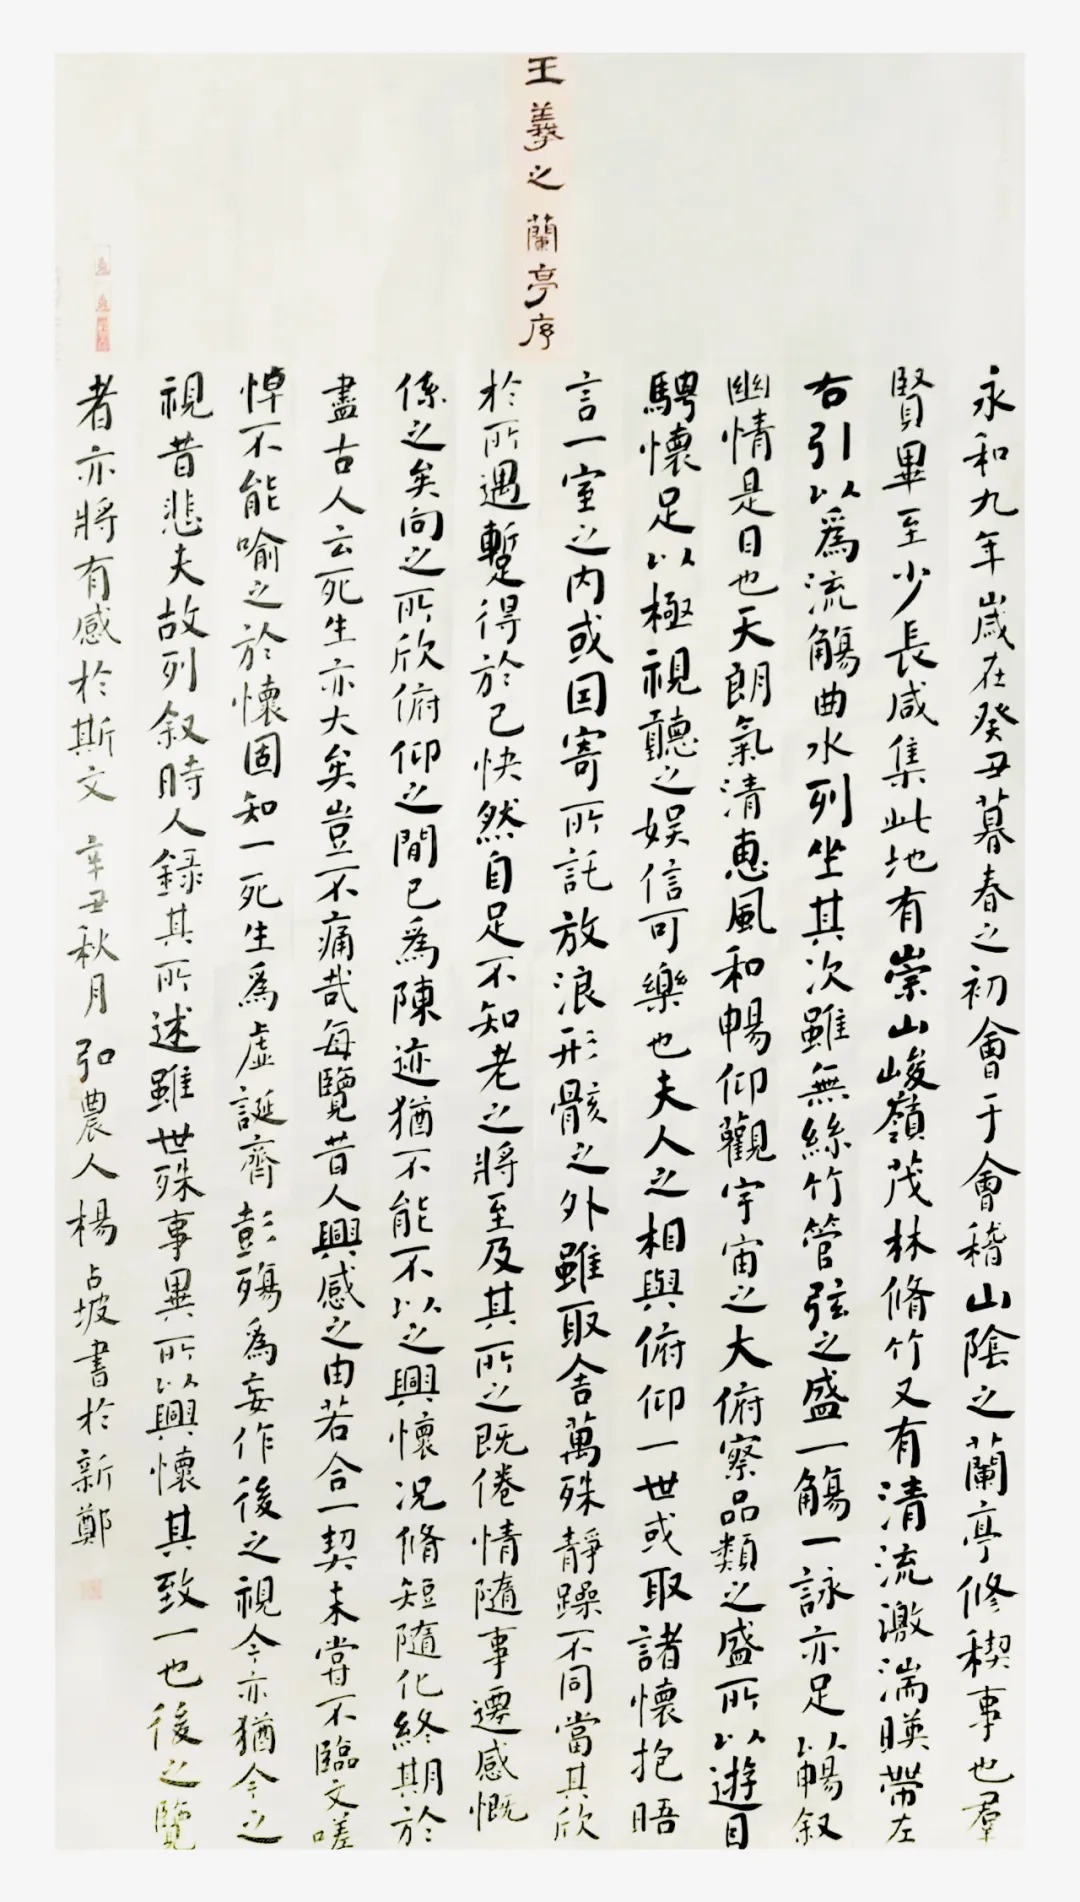 王羲之蘭亭序
永和九年歲在癸丑暮春之初會于會稽山陰之蘭亭修稧事也羣
賢畢至少長咸集此地有崇山峻嶺茂林脩竹又有清流激湍暎帶左
右引以為流觴曲水列坐其次雖無絲竹管弦之盛一觴一詠亦足以暢叙
幽情是日也天朗氣清惠風和暢仰觀宇宙之大俯察品類之盛所以遊目
騁懷足以極視聽之娛信可樂也夫人之相與俯仰一世或取諸懷抱晤
言一室之內或因寄所託放浪形骸之外雖取舍萬殊靜躁不同當其欣
於所遇蹔得於己快然自足不知老之將至及其所之既倦情隨事遷感慨
係之矣向之所欣俯仰之間已為陳迹猶不能不以之興懷况脩短隨化終期於
盡古人云死生亦大矣豈不痛哉每覽昔人興感之由若合一契未嘗不臨文嗟
悼不能喻之於懷固知一死生為虛誕齊彭殤為妄作後之視今亦猶今之
視昔悲夫故列叙時人錄其所述雖世殊事異所以興懷其致一也後之覽
者亦將有感於斯文 辛丑秋月弘農人楊占坡書於新鄭